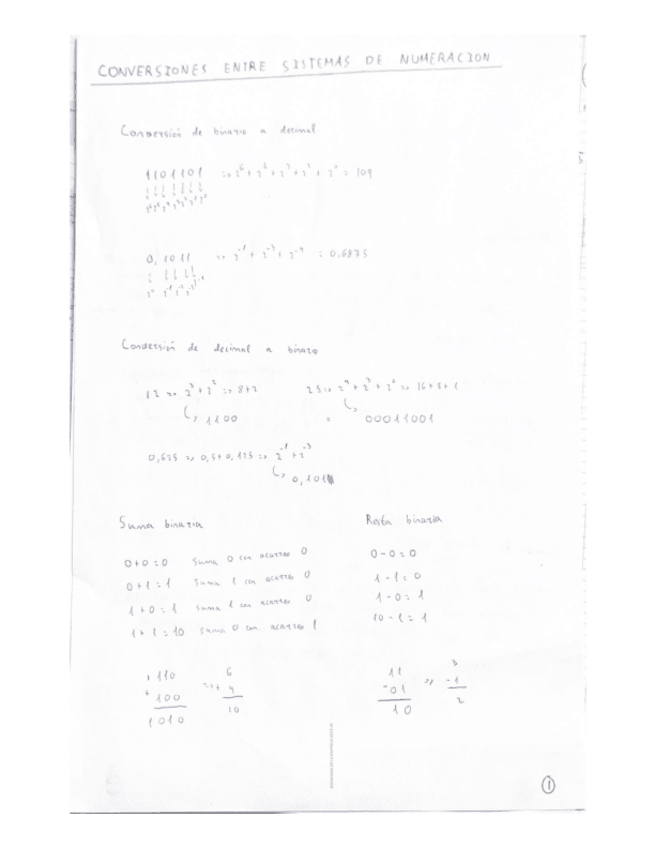 CONVERSIONES ENTRE SISTEMAS DE NUMERACION
Conversión de binario a decimal
1101101 => 2^6 + 2^5 + 2^3 + 2^2 + 2^0 = 109
0,1011 => 2^-1 + 2^-3 + 2^-4 = 0,6875
Conversión de decimal a binario
12 => 2^3 + 2^2 =>
↳ 1100
25 => 2^4 + 2^3 + 2^0 => 16+8+1
↳ 00011001
0,625 => 0,5 + 0,125 => 2^-1 + 2^-3
↳ 0,101
Suma binaria
0+0=0 Suma 0 con acarreo 0
0+1=1 Suma 1 con acarreo 0
1+0=1 Suma 1 con acarreo 0
1+1=10 Suma 0 con acarreo 1
110 => 6
+ 100 + 4
1010 10
Resta binaria
0-0=0
1-1=0
1-0=1
10-1=1
11 => 3
-01 -1
10 2
1